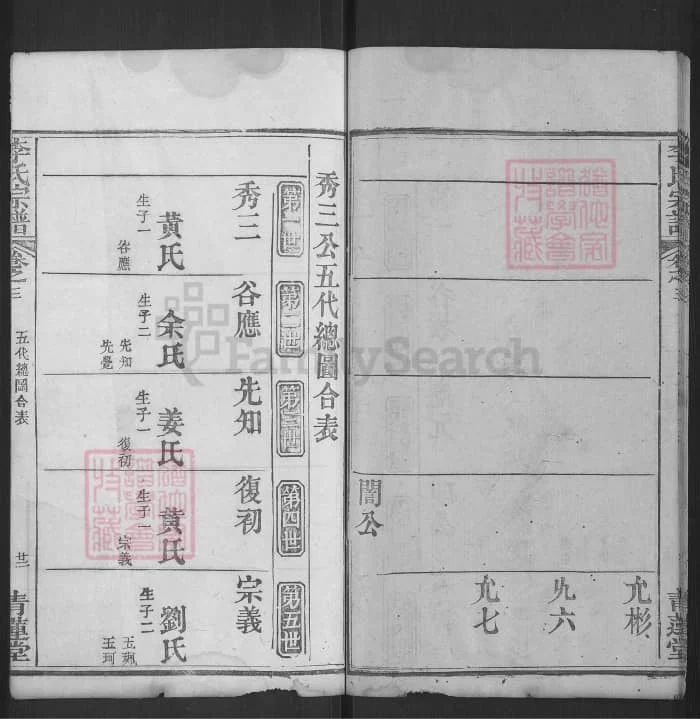 李氏宗譜
卷之三
青蓮堂
允彬
允六
允七
闇公
秀三公五代總圖合表
第一世
第二世
第三世
第四世
第五世
秀三
黃氏
生子一
谷應
谷應
余氏
生子二
先知
先覺
先知
姜氏
生子一
復初
復初
黃氏
生子一
宗義
宗義
劉氏
生子二
玉珂
李氏宗譜
卷之三
五代總圖合表
廿二
青蓮堂
FamilySearch